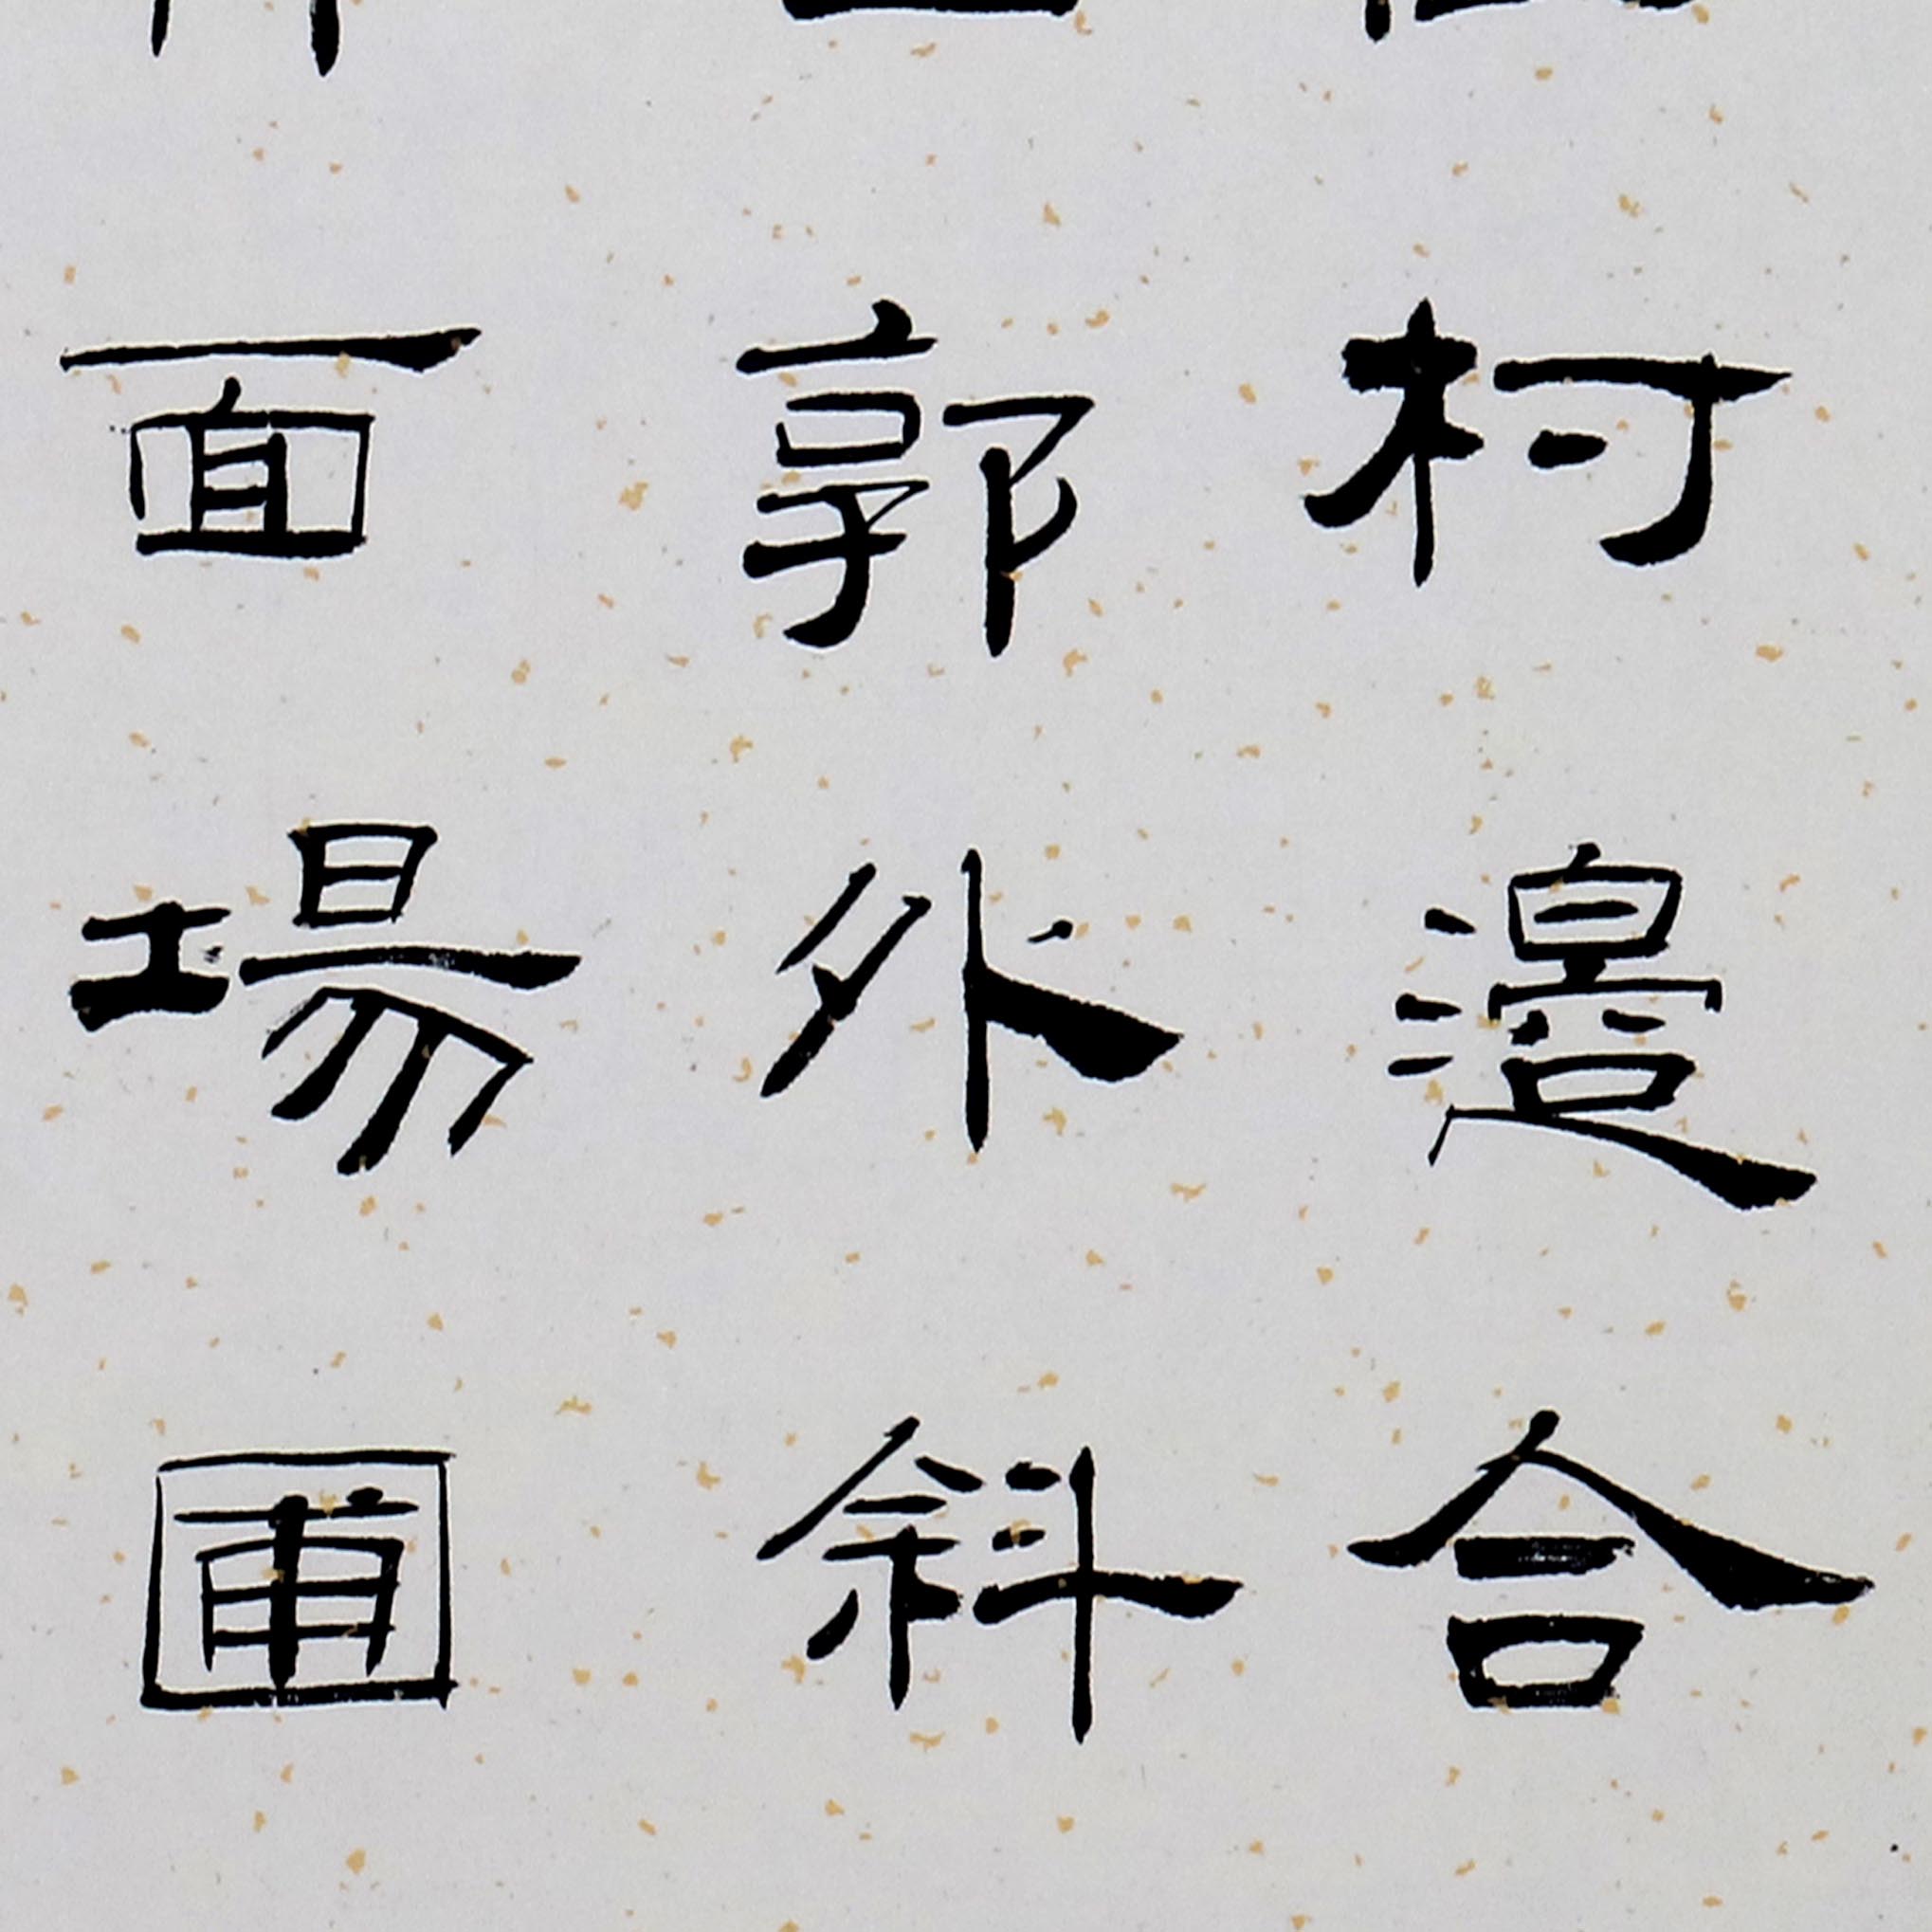 村邊合
郭外斜
面場圃